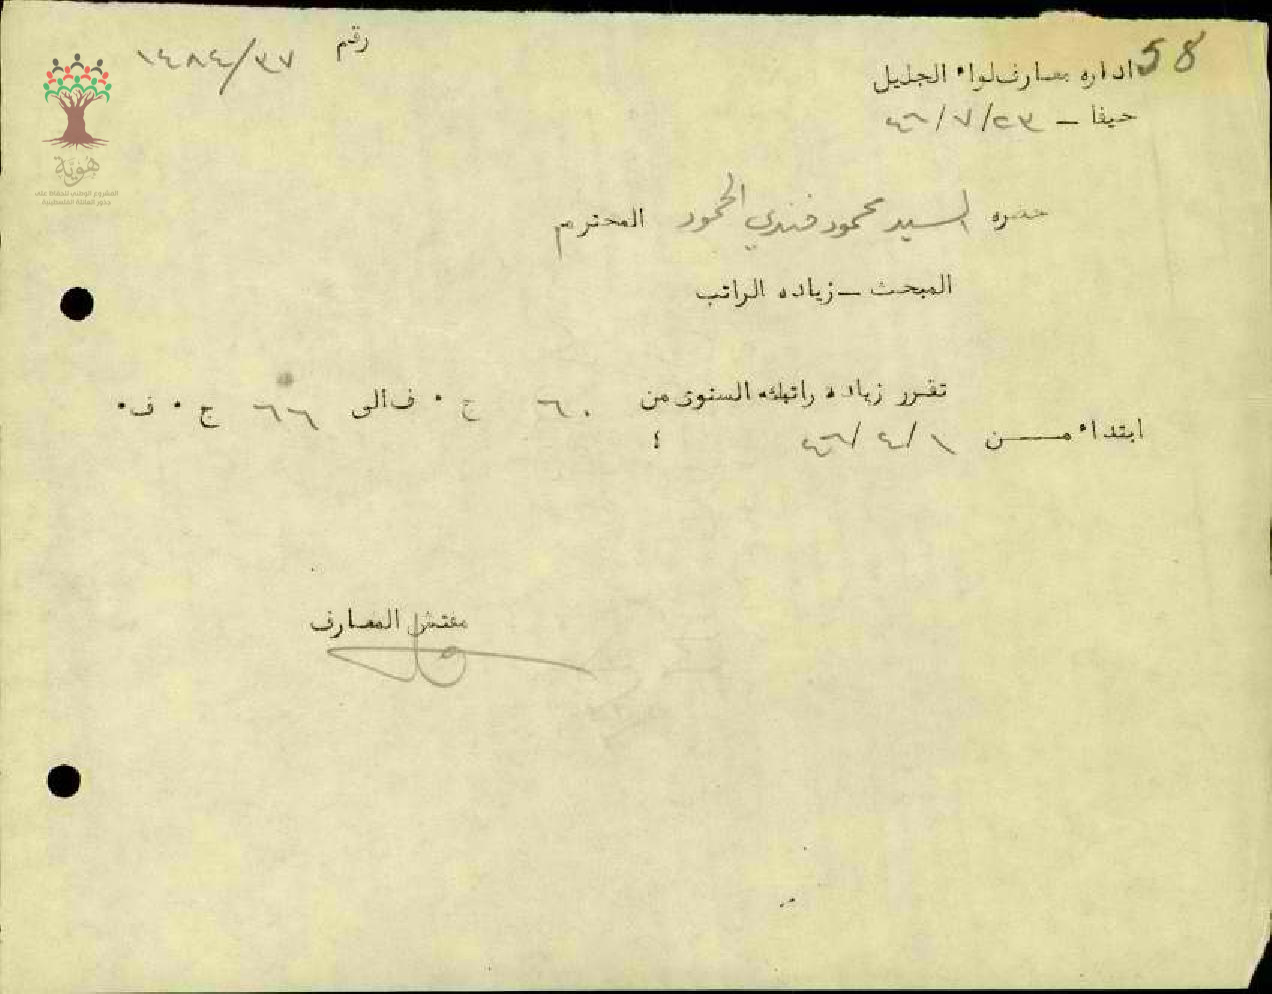 58
رقم ١٤٨٤/٣٧
اداره معارف لواء الجليل
حيفا - ٢٣/٧/٤٦
حضره السيد محمود فندي المحمود المحترم
المبحث - زياده الراتب
تقرر زيادة راتبك السنوى من ٦٠ ج ٠ ف الى ٦٦ ج ٠ ف٠
ابتداء من ١/٤/٤٦ ؛
مفتش المعارف
هُوِيَّة
المشروع الوطني للحفاظ على
جذور العائلة الفلسطينية